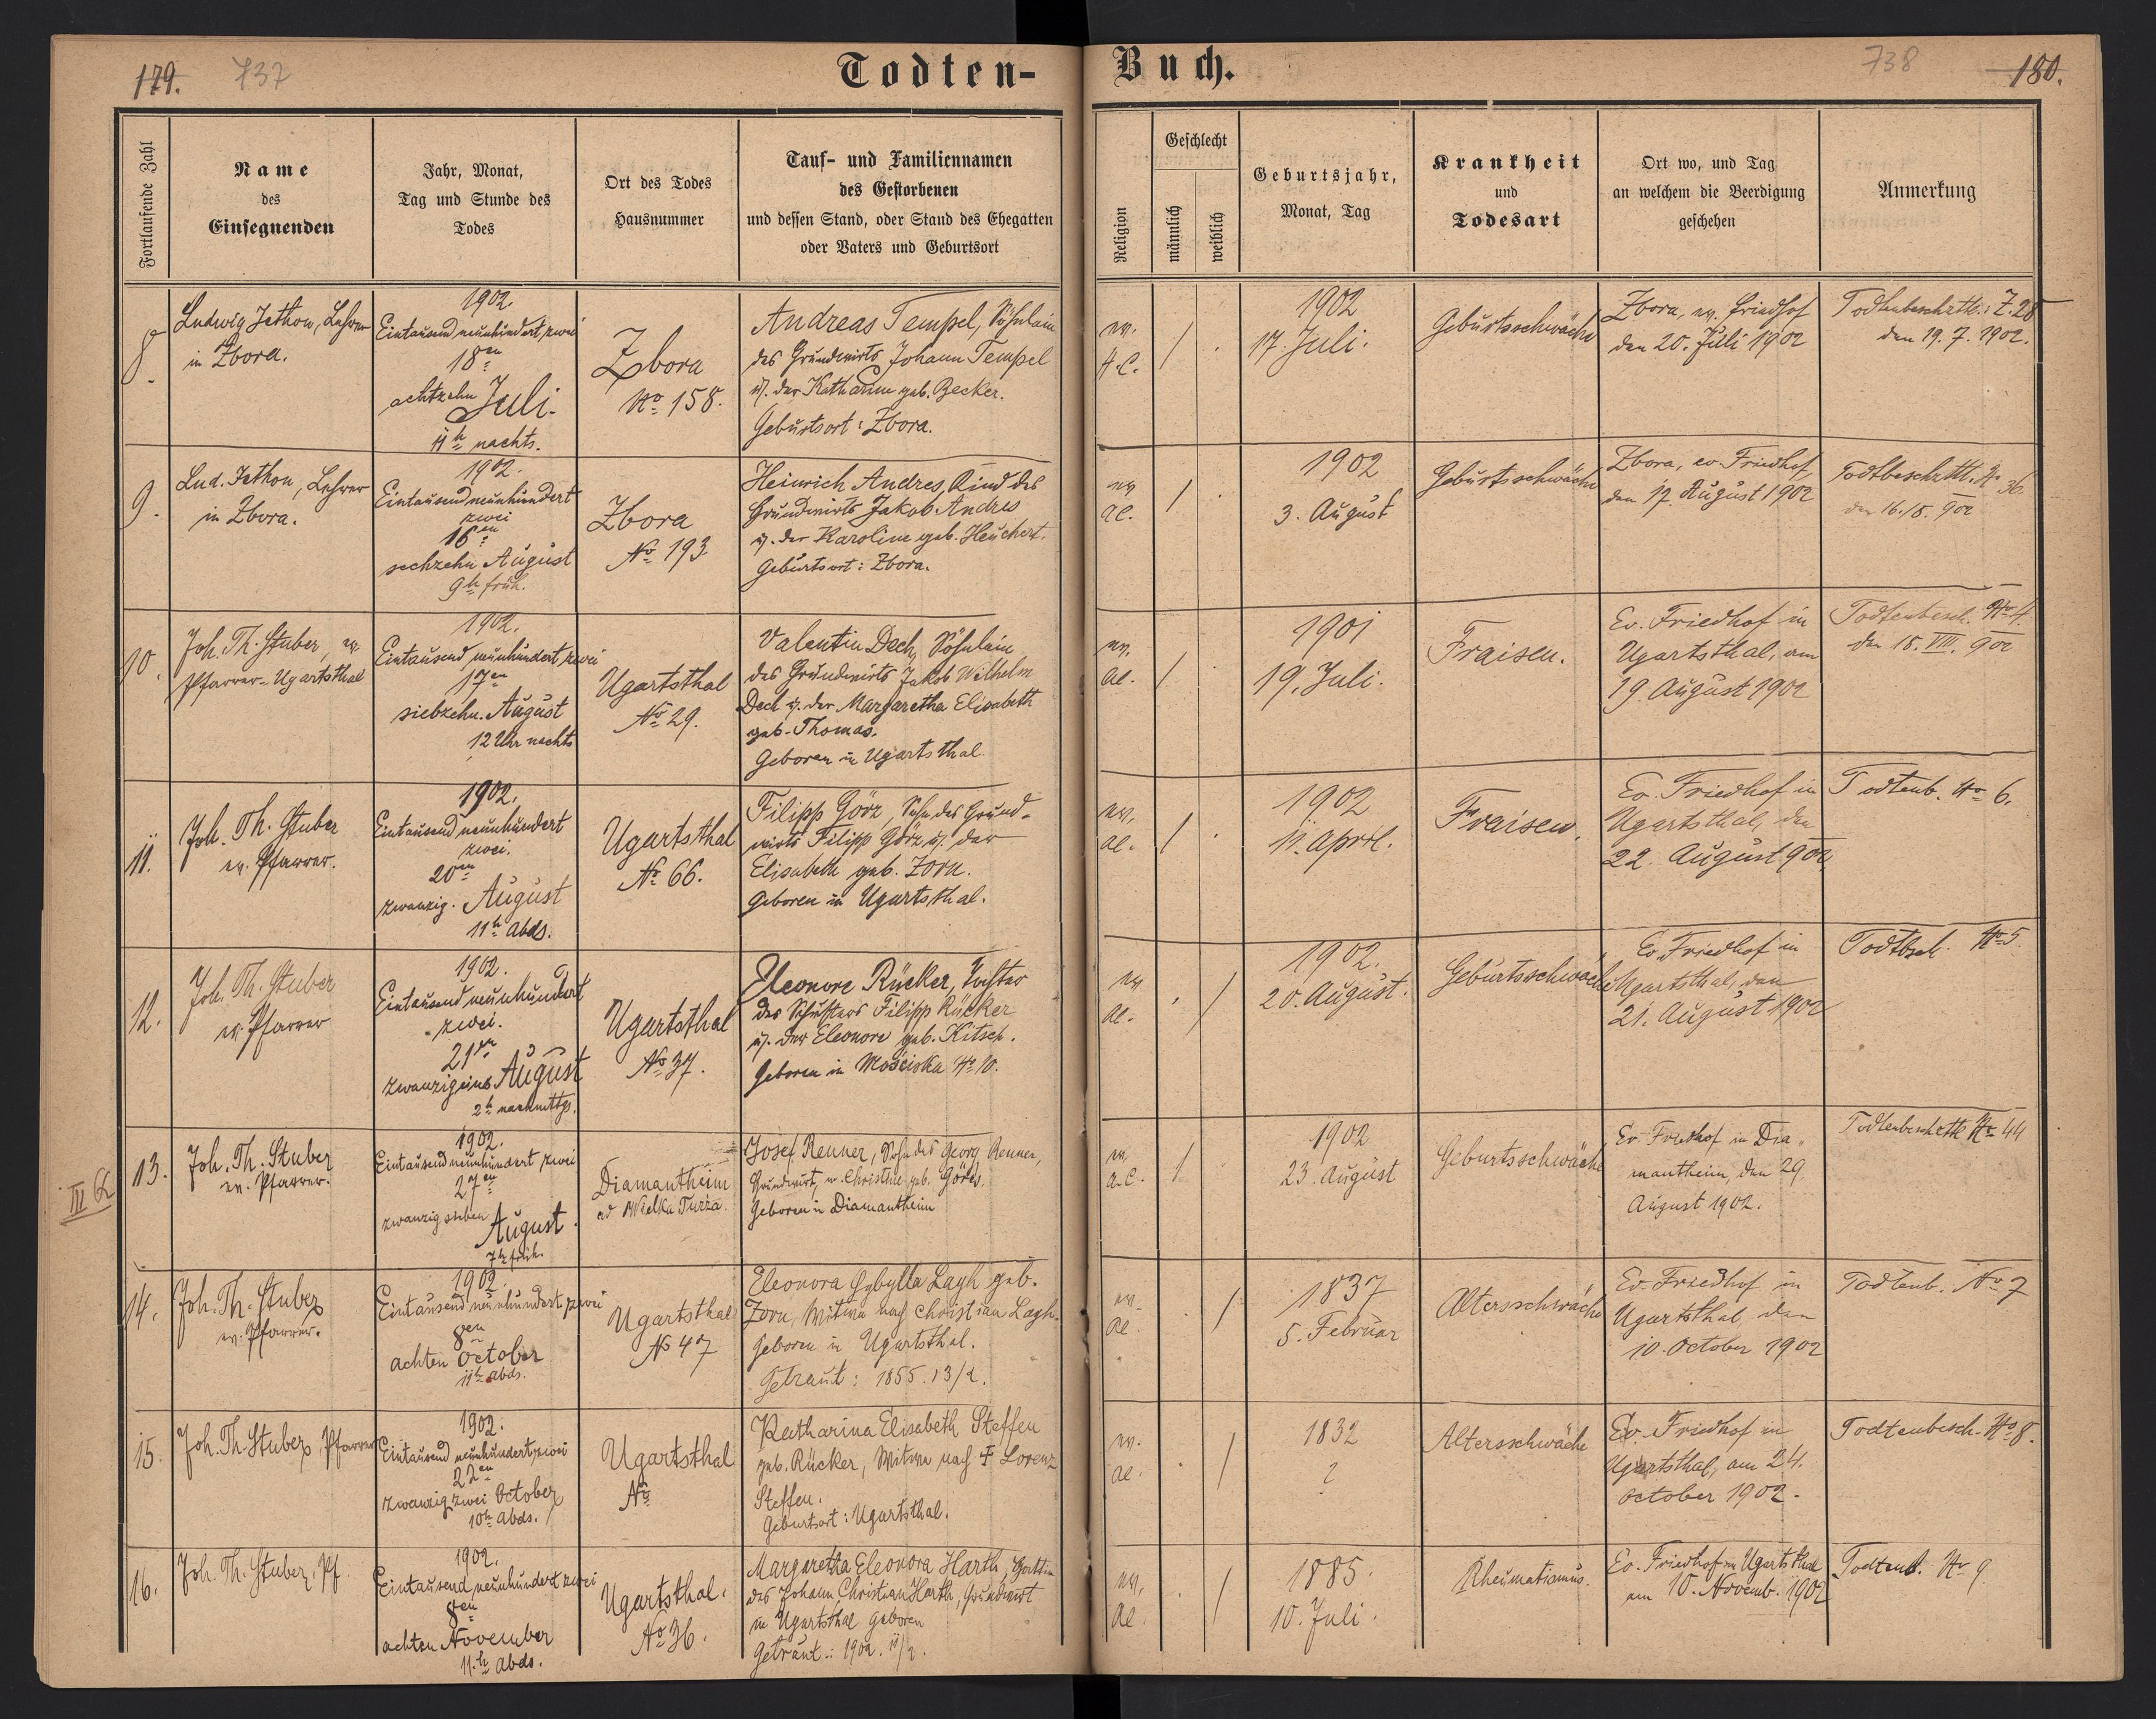 179. 737
Todten-
Buch.
738 180.
Fortlaufende Zahl
Name
des
Einsegnenden
Jahr, Monat,
Tag und Stunde des
Todes
Ort des Todes
Hausnummer
Tauf- und Familiennamen
des Gestorbenen
und dessen Stand, oder Stand des Ehegatten
oder Vaters und Geburtsort
Religion
Geschlecht
männlich
weiblich
Geburtsjahr,
Monat, Tag
Krankheit
und
Todesart
Ort wo, und Tag
an welchem die Beerdigung
geschehen
Anmerkung
8.
Ludwig Jethon, Lehrer
in Zbora.
1902.
Eintausend neunhundert, zwei
18en
achtzehn Juli.
11h nachts.
Zbora
No 158.
Andreas Tempel, Söhnlein
des Grundwirts Johann Tempel
u. der Katharina geb. Becker.
Geburtsort: Zbora.
ev.
A.C.
/ .
1902
17. Juli.
Geburtsschwäche
Zbora, ev. Friedhof
den 20. Juli 1902
Todtenbeschztt.: Z. 28
den 19. 7. 1902.
9.
Lud. Jethon, Lehrer
in Zbora.
1902.
Eintausend neunhundert
zwei
16en
sechzehn August
9h früh.
Zbora
No 193.
Heinrich Andres, Kind des
Grundwirts Jakob Andres
u. der Karoline geb. Heuchert.
Geburtsort: Zbora.
ev
ac.
/ .
1902
3. August
Geburtsschwäche
Zbora, ev. Friedhof
den 17. August 1902
Todtbeschztt. No 36.
den 16./8. 902
10.
Joh. Th. Stuber, ev
Pfarrer - Ugartsthal
1902.
Eintausend neunhundert, zwei
17en
siebzehn. August
12 Uhr nachts
Ugartsthal
No 29.
Valentin Dech, Söhnlein
des Grundwirts Jakob Wilhelm
Dech u. der Margaretha Elisabeth
geb. Thomas.
Geboren in Ugartsthal.
ev.
ac.
/ .
1901
19. Juli.
Fraisen.
Ev. Friedhof in
Ugartsthal, am
19. August 1902
Todtenbesch. No 4.
den 18. VIII. 902
11.
Joh. Th. Stuber
ev. Pfarrer.
1902.
Eintausend neunhundert
zwei.
20en
zwanzig. August
11h Abds.
Ugartsthal
No 66.
Filipp Görz, Sohn des Grund-
wirts Filipp Görz u. der
Elisabeth geb. Zorn.
Geboren in Ugartsthal.
ev.
ac.
/ .
1902
11. April.
Fraisen.
Ev. Friedhof in
Ugartsthal, den
22. August 902.
Todtenb. No 6.
12.
Joh. Th. Stuber
ev. Pfarrer
1902.
Eintausend neunhundert
zwei.
21en
zwanzigeins August
2h nachmttgs.
Ugartsthal
No 37.
Eleonore Rücker, Tochter
des Schusters Filipp Rücker
u. der Eleonore geb. Kitsch.
Geboren in Mościska No 10.
ev
ac.
. /
1902.
20. August.
Geburtsschwäche
Ev. Friedhof in
Ugartsthal, den
21. August 1902
Todtbsch. No 5.
III 62
13.
Joh. Th. Stuber
ev. Pfarrer.
1902.
Eintausend neunhundert zwei
27en
zwanzig sieben
August.
7h früh.
Diamantheim
ad Wielka Turza.
Josef Renner, Sohn des Georg Renner,
Grundwirt, u. Christine geb. Görtz.
Geboren in Diamantheim
ev.
a.C.
/ .
1902
23. August
Geburtsschwäche
Ev. Friedhof in Dia-
mantheim, den 29.
August 1902.
Todtenbeschztt No 44
14.
Joh. Th. Stuber
ev. Pfarrer.
1902.
Eintausend neunhundert zwei
8en
achten October
11h abds.
Ugartsthal
No 47
Eleonora Sybylla Lagh geb.
Zorn, Witwe nach Christian Lagh.
Geboren in Ugartsthal.
Getraut: 1855. 13/2.
ev.
ac.
. /
1837
5. Februar
Altersschwäche
Ev. Friedhof in
Ugartsthal, den
10. October 1902
Todtenb. No 7
15.
Joh. Th. Stuber, Pfarrer
1902.
Eintausend neunhundert, zwei
22en
zwanzig zwei October
10h Abds.
Ugartsthal
No
Katharina Elisabeth Steffen
geb. Rücker, Witwe nach F Lorenz
Steffen.
Geburtsort: Ugartsthal.
ev.
ac.
. /
1832
?
Altersschwäche
Ev. Friedhof in
Ugartsthal, am 24.
October 1902.
Todtenbesch. No 8.
16.
Joh. Th. Stuber, Pf.
1902.
Eintausend neunhundert zwei
8en
achten November
11.h abds.
Ugartsthal.
No 36.
Margaretha Eleonora Harth, Gattin
des Johann Christian Harth, Grundwirt
in Ugartsthal geboren
Getraut: 1902. 11/2.
ev.
ac
. /
1885.
10. Juli.
Rheumatismus.
Ev. Friedhof in Ugartsthal
am 10. Novemb. 1902
Todtenb. No 9